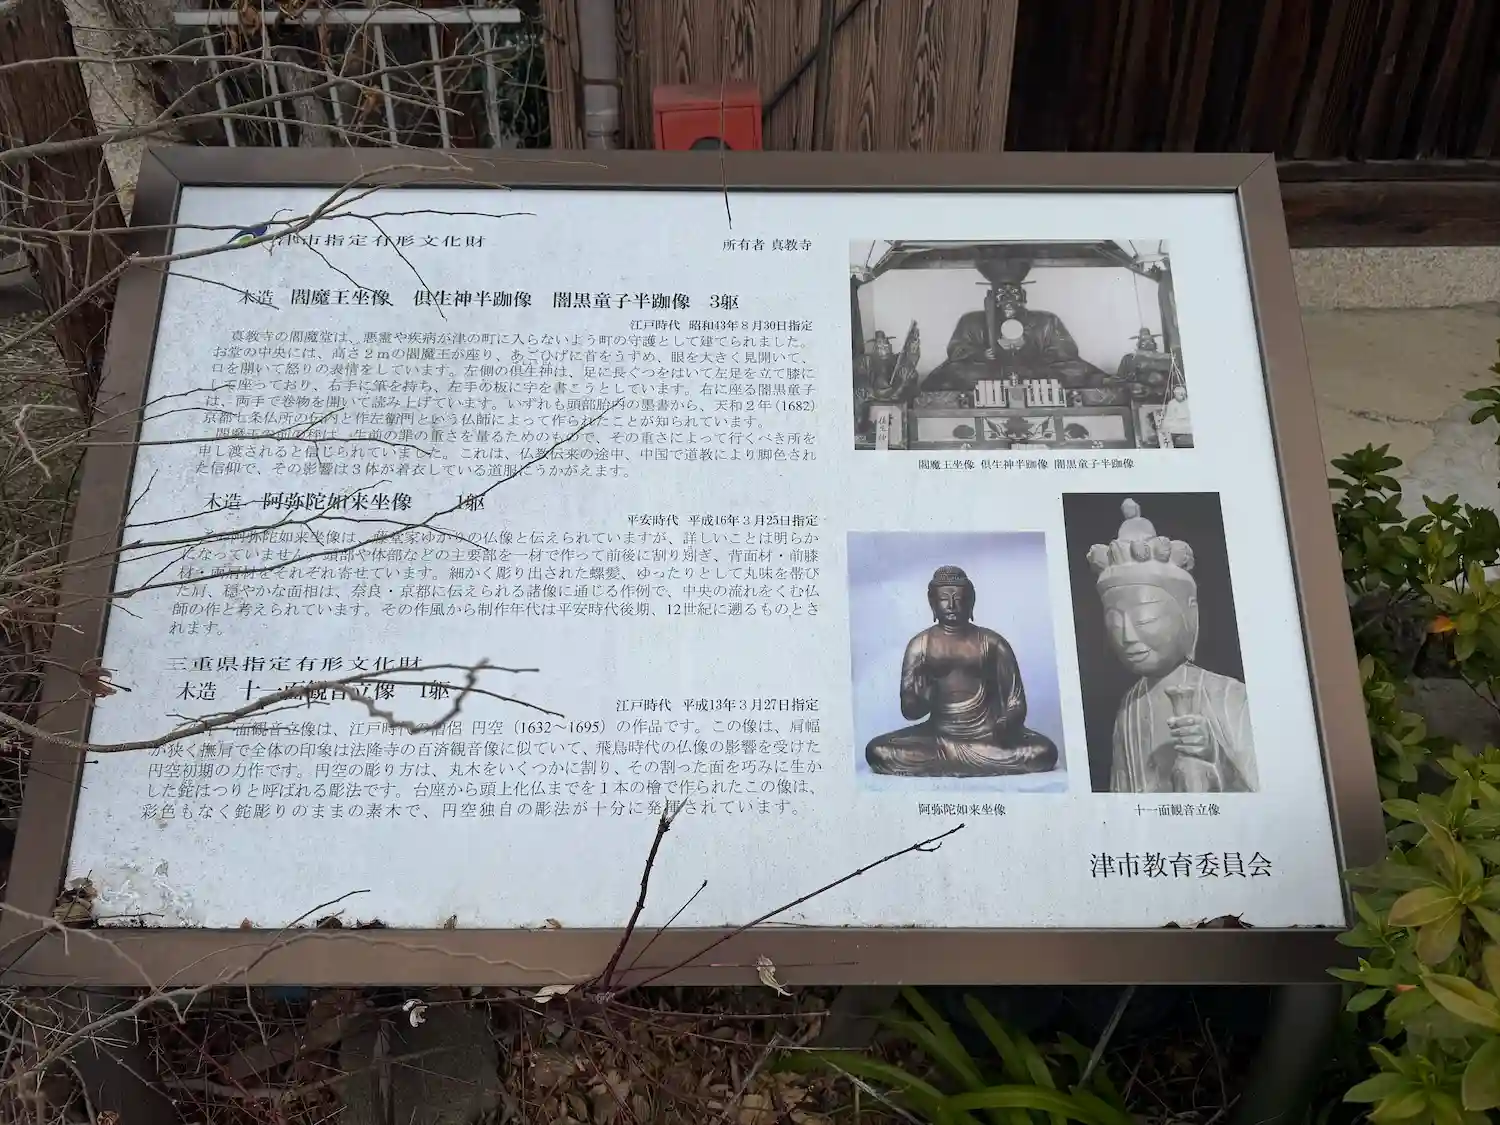 津市指定有形文化財
所有者 真教寺
木造 閻魔王坐像 倶生神半跏像 闇黒童子半跏像 3躯
江戸時代 昭和43年8月30日指定
真教寺の閻魔堂は、悪霊や疾病が津の町に入らないよう町の守護として建てられました。
お堂の中央には、高さ2mの閻魔王が座り、あごひげに首をうずめ、眼を大きく見開いて、
口を開いて怒りの表情をしています。左側の倶生神は、足に長ぐつをはいて左足を立て膝に
して座っており、右手に筆を持ち、左手の板に字を書こうとしています。右に座る闇黒童子
は、両手で巻物を開いて読み上げています。いずれも頭部胎内の墨書から、天和2年(1682)
京都七条仏所の伝内と作左衛門という仏師によって作られたことが知られています。
閻魔王の前の秤は、生前の罪の重さを量るためのもので、その重さによって行くべき所を
申し渡されると信じられていました。これは、仏教伝来の途中、中国で道教により脚色され
た信仰で、その影響は3体が着衣している道服にうかがえます。
木造 阿弥陀如来坐像 1躯
平安時代 平成16年3月25日指定
阿弥陀如来坐像は、藤堂家ゆかりの仏像と伝えられていますが、詳しいことは明らか
になっていません。頭部や体部などの主要部を一材で作って前後に割り矧ぎ、背面材・前膝
材・両肩材をそれぞれ寄せています。細かく彫り出された螺髪、ゆったりとして丸味を帯び
た肩、穏やかな面相は、奈良・京都に伝えられる諸像に通じる作例で、中央の流れをくむ仏
師の作と考えられています。その作風から制作年代は平安時代後期、12世紀に遡るものとさ
れます。
三重県指定有形文化財
木造 十一面観音立像 1躯
江戸時代 平成13年3月27日指定
十一面観音立像は、江戸時代の僧侶 円空(1632～1695)の作品です。この像は、肩幅
が狭く撫肩で全体の印象は法隆寺の百済観音像に似ていて、飛鳥時代の仏像の影響を受けた
円空初期の力作です。円空の彫り方は、丸木をいくつかに割り、その割った面を巧みに生か
した鉈はつりと呼ばれる彫法です。台座から頭上化仏までを1本の檜で作られたこの像は、
彩色もなく鉈彫りのままの素木で、円空独自の彫法が十分に発揮されています。
閻魔王坐像 倶生神半跏像 闇黒童子半跏像
阿弥陀如来坐像
十一面観音立像
津市教育委員会